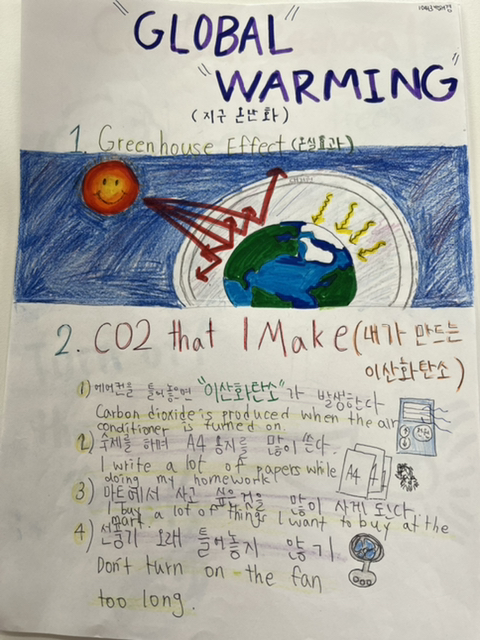 "GLOBAL"
"WARMING"
(지구 온난화)
1. Greenhouse Effect (온실효과)
2. CO2 that I Make (내가 만드는
이산화탄소)
1) 에어컨를 틀어놓으면 "이산화탄소"가 발생한다
Carbon dioxide is produced when the air
conditioner is turned on.
2) 숙제를 하며 A4 용지를 많이 쓴다.
I write a lot of papers while
doing my homework
A4
3) 마트에서 사고 싶은것을 많이 사게 된다.
I buy a lot of things I want to buy at the
mart.
4) 선풍기 오래 틀어놓지 않기
Don't turn on the fan
too long.